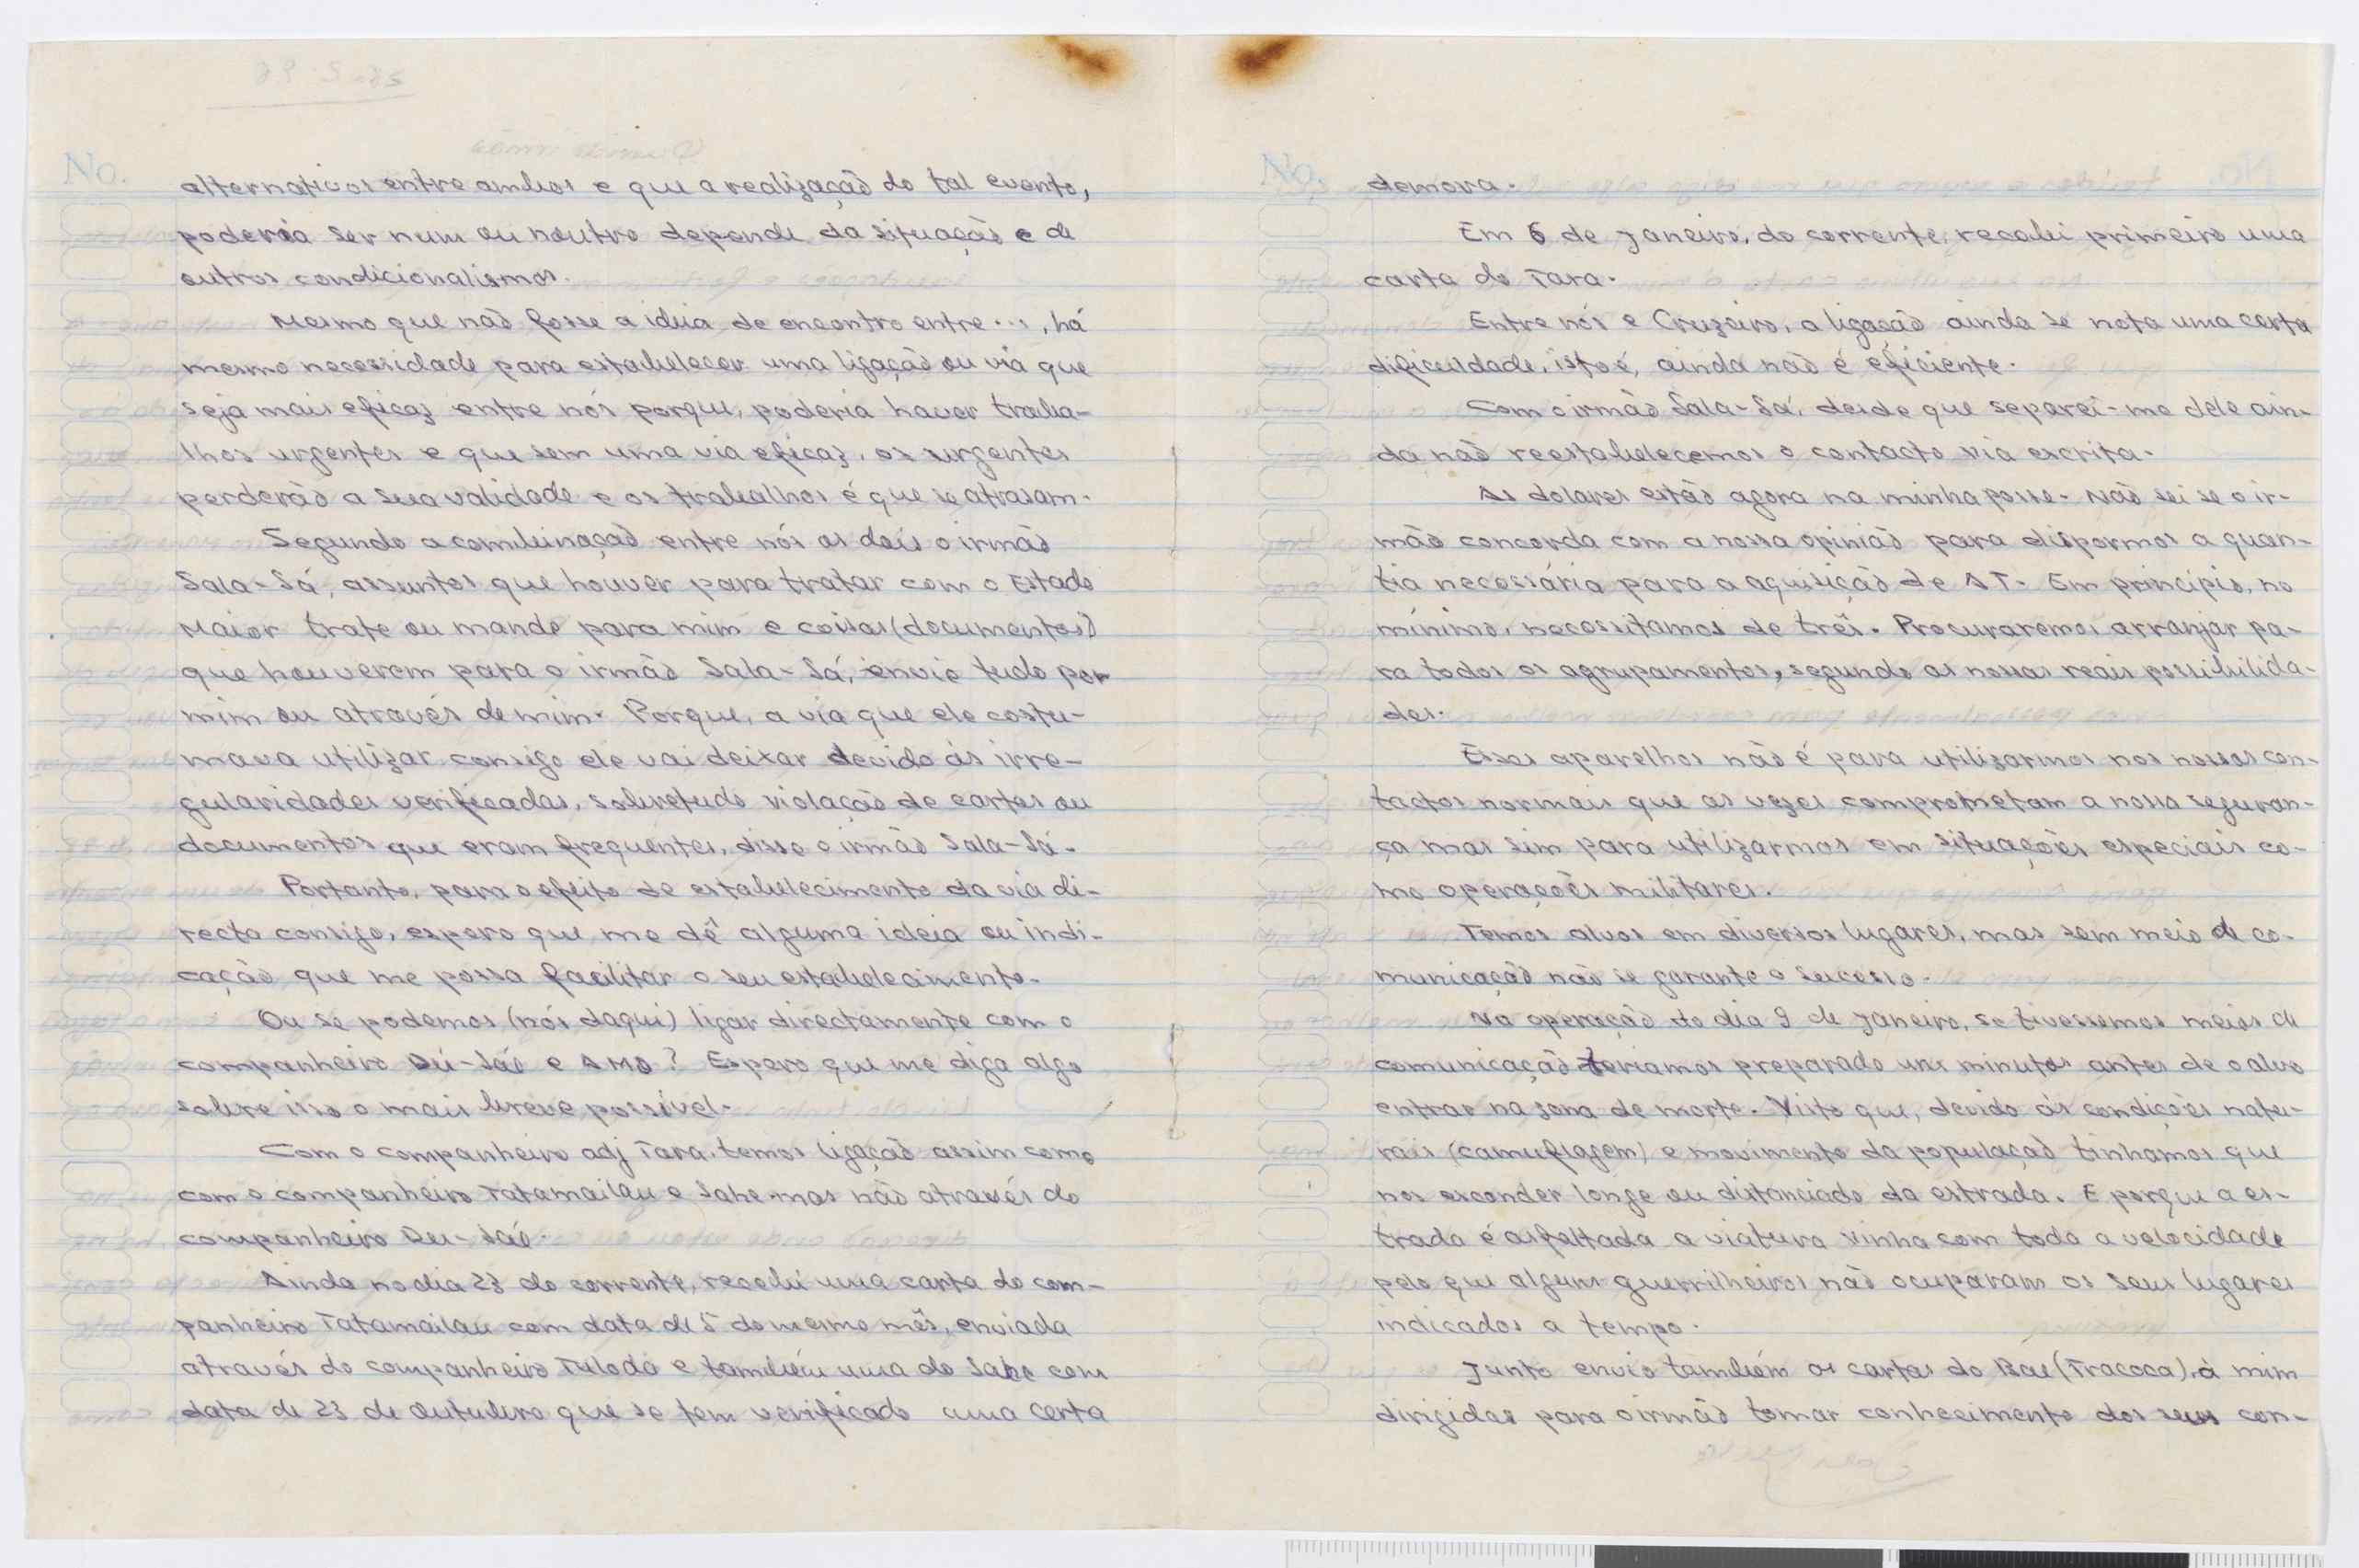 No.
alternativos entre ambos e que a realização do tal evento,
poderia ser num ou noutro depende da situação e de
outros condicionalismos.
Mesmo que não fosse a ideia de encontro entre ..., há
mesmo necessidade para estabelecer uma ligação ou via que
seja mais eficaz entre nós porque, poderia haver traba-
lhos urgentes e que sem uma via eficaz, os urgentes
perderão a sua validade e os trabalhos é que se atrasam.
Segundo a combinação entre nós os dois o irmão
Sala-Sá, assuntos que houver para tratar com o Estado
Maior trate ou mande para mim e coisas (documentos)
que houverem para o irmão Sala-Sá, envie tudo por
mim ou através de mim. Porque, a via que ele costu-
mava utilizar consigo ele vai deixar devido às irre-
gularidades verificadas, sobretudo violação de cartas ou
documentos que eram frequentes, disse o irmão Sala-Sá.
Portanto, para o efeito de estabelecimento da via di-
recta consigo, espero que me dê alguma ideia ou indi-
cação que me possa facilitar o seu estabelecimento.
Ou se podemos (nós daqui) ligar directamente com o
companheiro e AMO? Espero que me diga algo
sobre isso o mais breve possível.
Com o companheiro adj Tara, temos ligação assim como
com o companheiro Tatamailau e Sabe mas não através do
companheiro
Ainda no dia 23 do corrente, recebi uma carta do com-
panheiro Tatamailau com data de 5 do mesmo mês, enviada
através do companheiro Tuloda e também uma do Sabe com
data de 23 de Outubro que se tem verificado uma certa
No.
demora.
Em 6 de Janeiro, do corrente, recebi primeiro uma
carta do Tara.
Entre nós e Cruzeiro, a ligação ainda se nota uma certa
dificuldade, isto é, ainda não é eficiente.
Com o irmão Sala-Sá, desde que separei-me dele ain-
da não reestabelecemos o contacto via escrita.
As dolares estão agora na minha posse. Não sei se o ir-
mão concorda com a nossa opinião para dispormos a quan-
tia necessária para a aquisição de AT. Em princípio, no
mínimo, necessitamos de três. Procuraremos arranjar pa-
ra todos os agrupamentos, segundo as nossas reais possibilida-
des.
Esses aparelhos não é para utilizarmos nos nossos con-
tactos normais que as vezes comprometam a nossa seguran-
ça mas sim para utilizarmos em situações especiais co-
mo operações militares.
Temos alvos em diversos lugares, mas sem meio de co-
municação não se garante o sucesso.
Na operação do dia 9 de Janeiro, se tivessemos meios de
comunicação teriamos preparado uns minutos antes de o alvo
entrar na zona de morte. Visto que, devido às condições natu-
rais (camuflagem) e movimento da população tinhamos que
nos esconder longe ou distanciado da estrada. E porque a es-
trada é asfaltada a viatura vinha com toda a velocidade
pelo que alguns guerrilheiros não ocuparam os seus lugares
indicados a tempo.
Junto envio também as cartas do Bae (Tracoca), à mim
dirigidas para o irmão tomar conhecimento dos seus con-